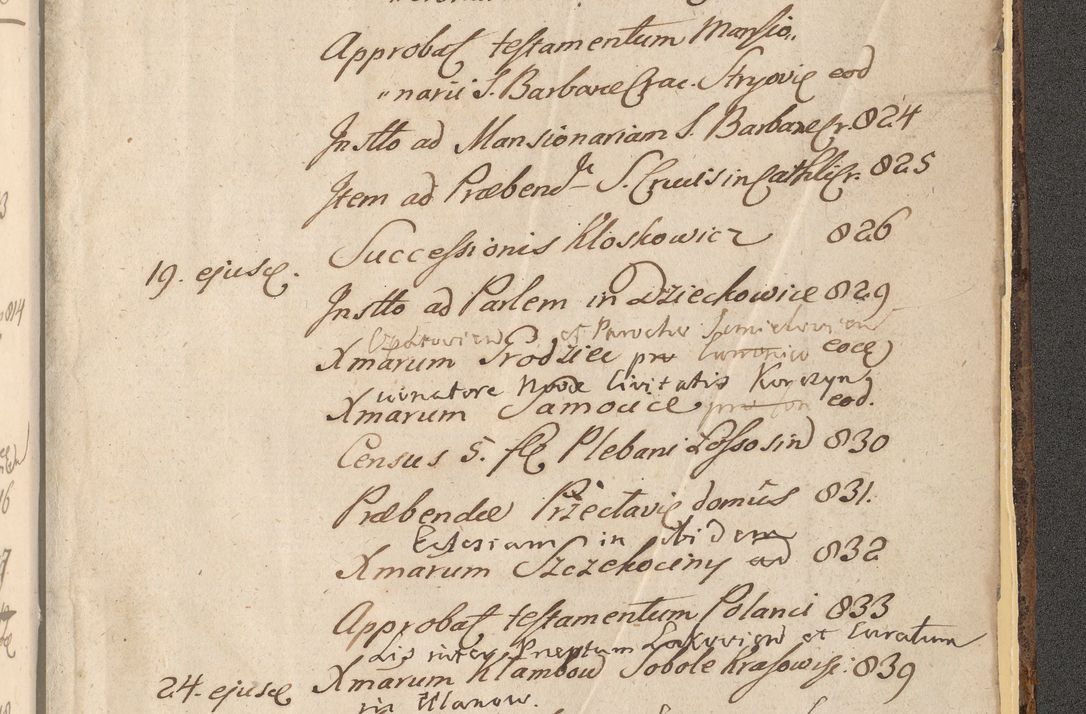 Approbaꝭ testamentum Mansio„
„narii S. Barbaræ Crac. Stryovie eod
Instto ad Mansionariam S. Barbaræ Cr. 824
Item ad Præbend S. Crucis in Cathli Cr. 825
Successionis Kłoskowicz 826
19. ejusd.
Instto ad Parlem in Dzieckowice 829
et Parocho
Xmarum Grodziec pro Canonico eod
Novæ Civitatis Korczyn
Xmarum Samowice eod.
Census 5. fl Plebani Łossosin 830
Præbendæ Przeclavie domus 831.
Ecclesiam in ibidem
Xmarum Szczekociny ad 832
Approbaꝭ testamentum Polanci 833
Lis inter Præptum et Curatum
24. ejusd Xmarum Klambow Sobole Krasowise: 839
in Ulanow.